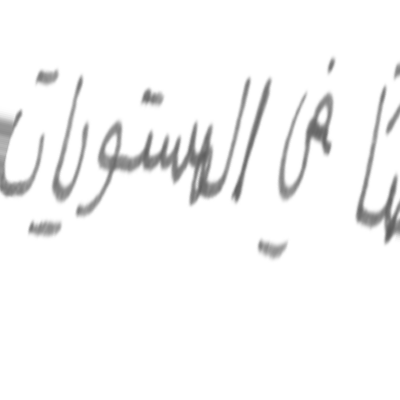 في المستويات